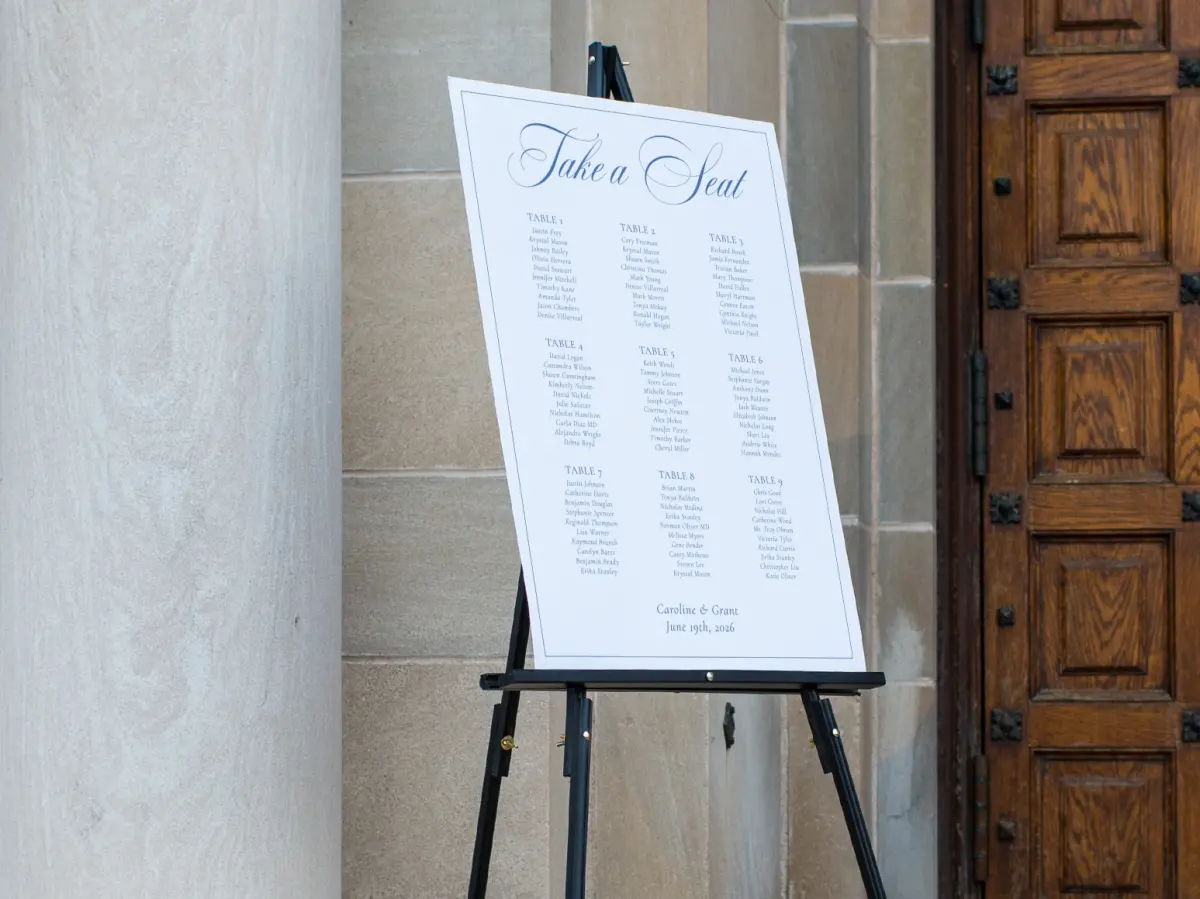 Take a Seat
TABLE 1
Justin Frey
Krystal Mason
Johnny Bailey
Olivia Herrera
David Stewart
Jennifer Mitchell
Timothy Kane
Amanda Tyler
Jason Chambers
Denise Villarreal
TABLE 2
Cory Freeman
Krystal Mason
Shawn Smith
Christina Thomas
Mark Young
Denise Villarreal
Mark Morris
Tonya Mckay
Ronald Hogan
Taylor Wright
TABLE 3
Richard Booth
Jamie Fernandez
Tristan Baker
Mary Thompson
David Fuller
Sheryl Hartman
Connor Eaton
Cynthia Knight
Michael Nelson
Victoria Patel
TABLE 4
David Logan
Cassandra Wilson
Shawn Cunningham
Kimberly Nelson
David Nichols
Julie Salazar
Nicholas Hamilton
Carla Diaz MD
Alejandro Wright
Debra Boyd
TABLE 5
Keith Woods
Tammy Johnson
Steve Gates
Michelle Stuart
Joseph Griffin
Courtney Newton
Alex Mckee
Jennifer Pierce
Timothy Barker
Cheryl Miller
TABLE 6
Michael Jones
Stephanie Vargas
Anthony Dunn
Tonya Baldwin
Josh Weaver
Elizabeth Johnson
Nicholas Long
Sheri Liu
Andrew White
Hannah Mendez
TABLE 7
Justin Johnson
Catherine Davis
Benjamin Douglas
Stephanie Spencer
Reginald Thompson
Lisa Warner
Raymond Branch
Carolyn Bates
Benjamin Brady
Erika Stanley
TABLE 8
Brian Martin
Tonya Baldwin
Nicholas Medina
Erika Stanley
Norman Oliver MD
Melissa Myers
Gene Bender
Casey Mathews
Steven Lee
Krystal Mason
TABLE 9
Chris Good
Lori Green
Nicholas Hill
Catherine Wood
Mr. Troy Obrien
Victoria Tyler
Richard Curtis
Erika Stanley
Christopher Liu
Katie Oliver
Caroline & Grant
June 19th, 2026